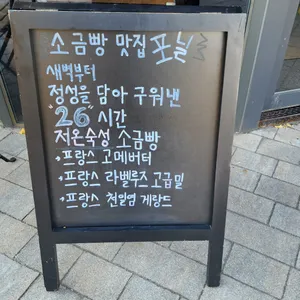 소금빵 맛집 포닐
새벽부터
정성을 담아 구워낸
"26" 시간
저온숙성 소금빵
+ 프랑스 고메버터
+ 프랑스 라벨루즈 고급밀
+ 프랑스 천일염 게랑드